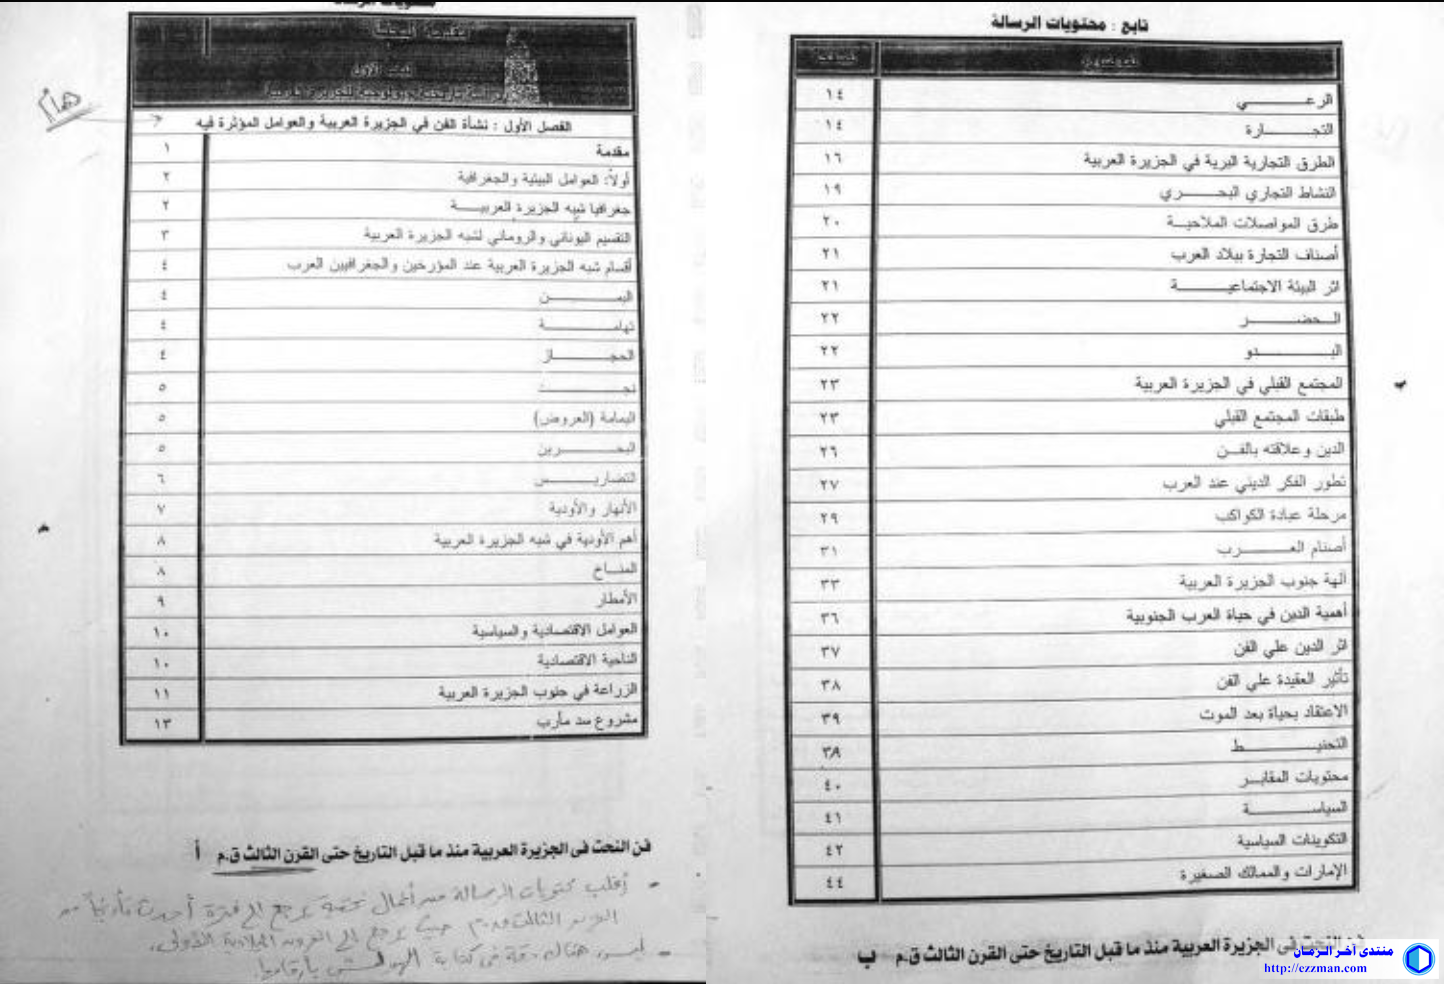 محتويات الرسالة
مقدمة البحث
الباب الأول
هام
الفصل الأول : نشأة الفن في الجزيرة العربية والعوامل المؤثرة فيه
مقدمة ١
أولاً: العوامل البيئية والجغرافية ٢
جغرافيا شبه الجزيرة العربيـــة ٢
التقسيم اليوناني والروماني لشبه الجزيرة العربية ٣
أقسام شبه الجزيرة العربية عند المؤرخين والجغرافيين العرب ٤
اليمــــــــن ٤
تهامــــــــة ٤
الحجــــــــاز ٤
نجــــــــد ٥
اليمامة (العروض) ٥
البحــــــــرين ٥
التضاريــــــــس ٦
الأنهار والأودية ٧
أهم الأودية في شبه الجزيرة العربية ٨
المنــاخ ٨
الأمطار ٩
العوامل الاقتصادية والسياسية ١٠
الناحية الاقتصادية ١٠
الزراعة في جنوب الجزيرة العربية ١١
مشروع سد مأرب ١٣
فن النحت فى الجزيرة العربية منذ ما قبل التاريخ حتى القرن الثالث ق.م أ
- أغلب محتويات الرسالة من أعمال نحتية يرجع الى فترة أحدث تأريخاً من
القرن الثالث ق.م حيث يرجع الى القرون الميلادية الأولى.
- ليس هناك دقة فى كتابة الهوامش بأرقامها.
تابع : محتويات الرسالة
الموضوع الصفحة
الرعــــــــي ١٤
التجــــــــارة ١٤
الطرق التجارية البرية في الجزيرة العربية ١٦
النشاط التجاري البحــــــري ١٩
طرق المواصلات الملاحيـــة ٢٠
أصناف التجارة ببلاد العرب ٢١
اثر البيئة الاجتماعيــــــة ٢١
الــحضــــــــر ٢٢
البــــــــدو ٢٢
المجتمع القبلي في الجزيرة العربية ٢٣
طبقات المجتمع القبلي ٢٣
الدين وعلاقته بالفــن ٢٦
تطور الفكر الديني عند العرب ٢٧
مرحلة عبادة الكواكب ٢٩
أصنام العــــــرب ٣١
آلهة جنوب الجزيرة العربية ٣٣
أهمية الدين في حياة العرب الجنوبية ٣٦
اثر الدين علي الفن ٣٧
تأثير العقيدة علي الفن ٣٨
الاعتقاد بحياة بعد الموت ٣٩
التحنيــــــــط ٣٨
محتويات المقابــر ٤٠
السياســــــــة ٤١
التكوينات السياسية ٤٢
الإمارات والممالك الصغيرة ٤٤
فن النحت فى الجزيرة العربية منذ ما قبل التاريخ حتى القرن الثالث ق.م ب
منتدى آخر الزمان
http://ezzman.com